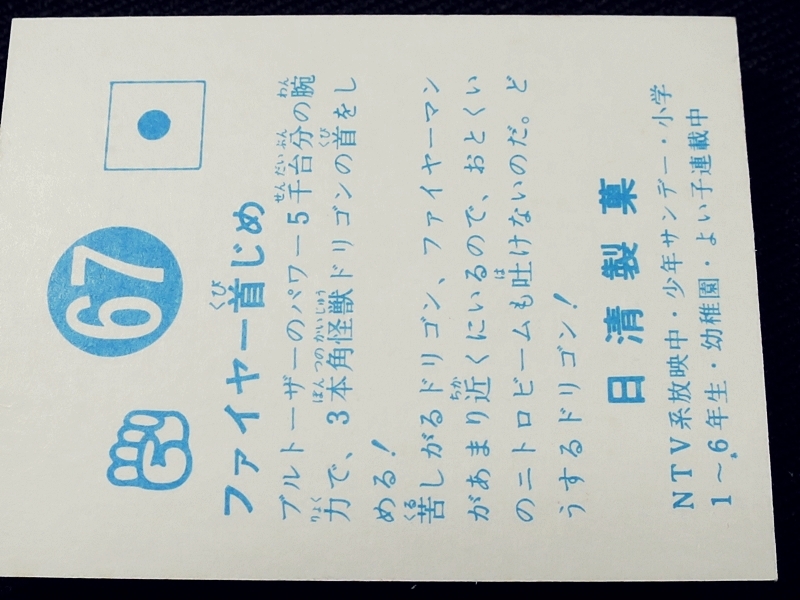 67
ファイヤー首じめ
ブルトーザーのパワー5千台分の腕
力で、3本角怪獣ドリゴンの首をし
める!
苦しがるドリゴン、ファイヤーマン
があまり近くにいるので、おとくい
のニトロビームも吐けないのだ。ど
うするドリゴン!
日清製菓
NTV系放映中・少年サンデー・小学
1~6年生・幼稚園・よい子連載中